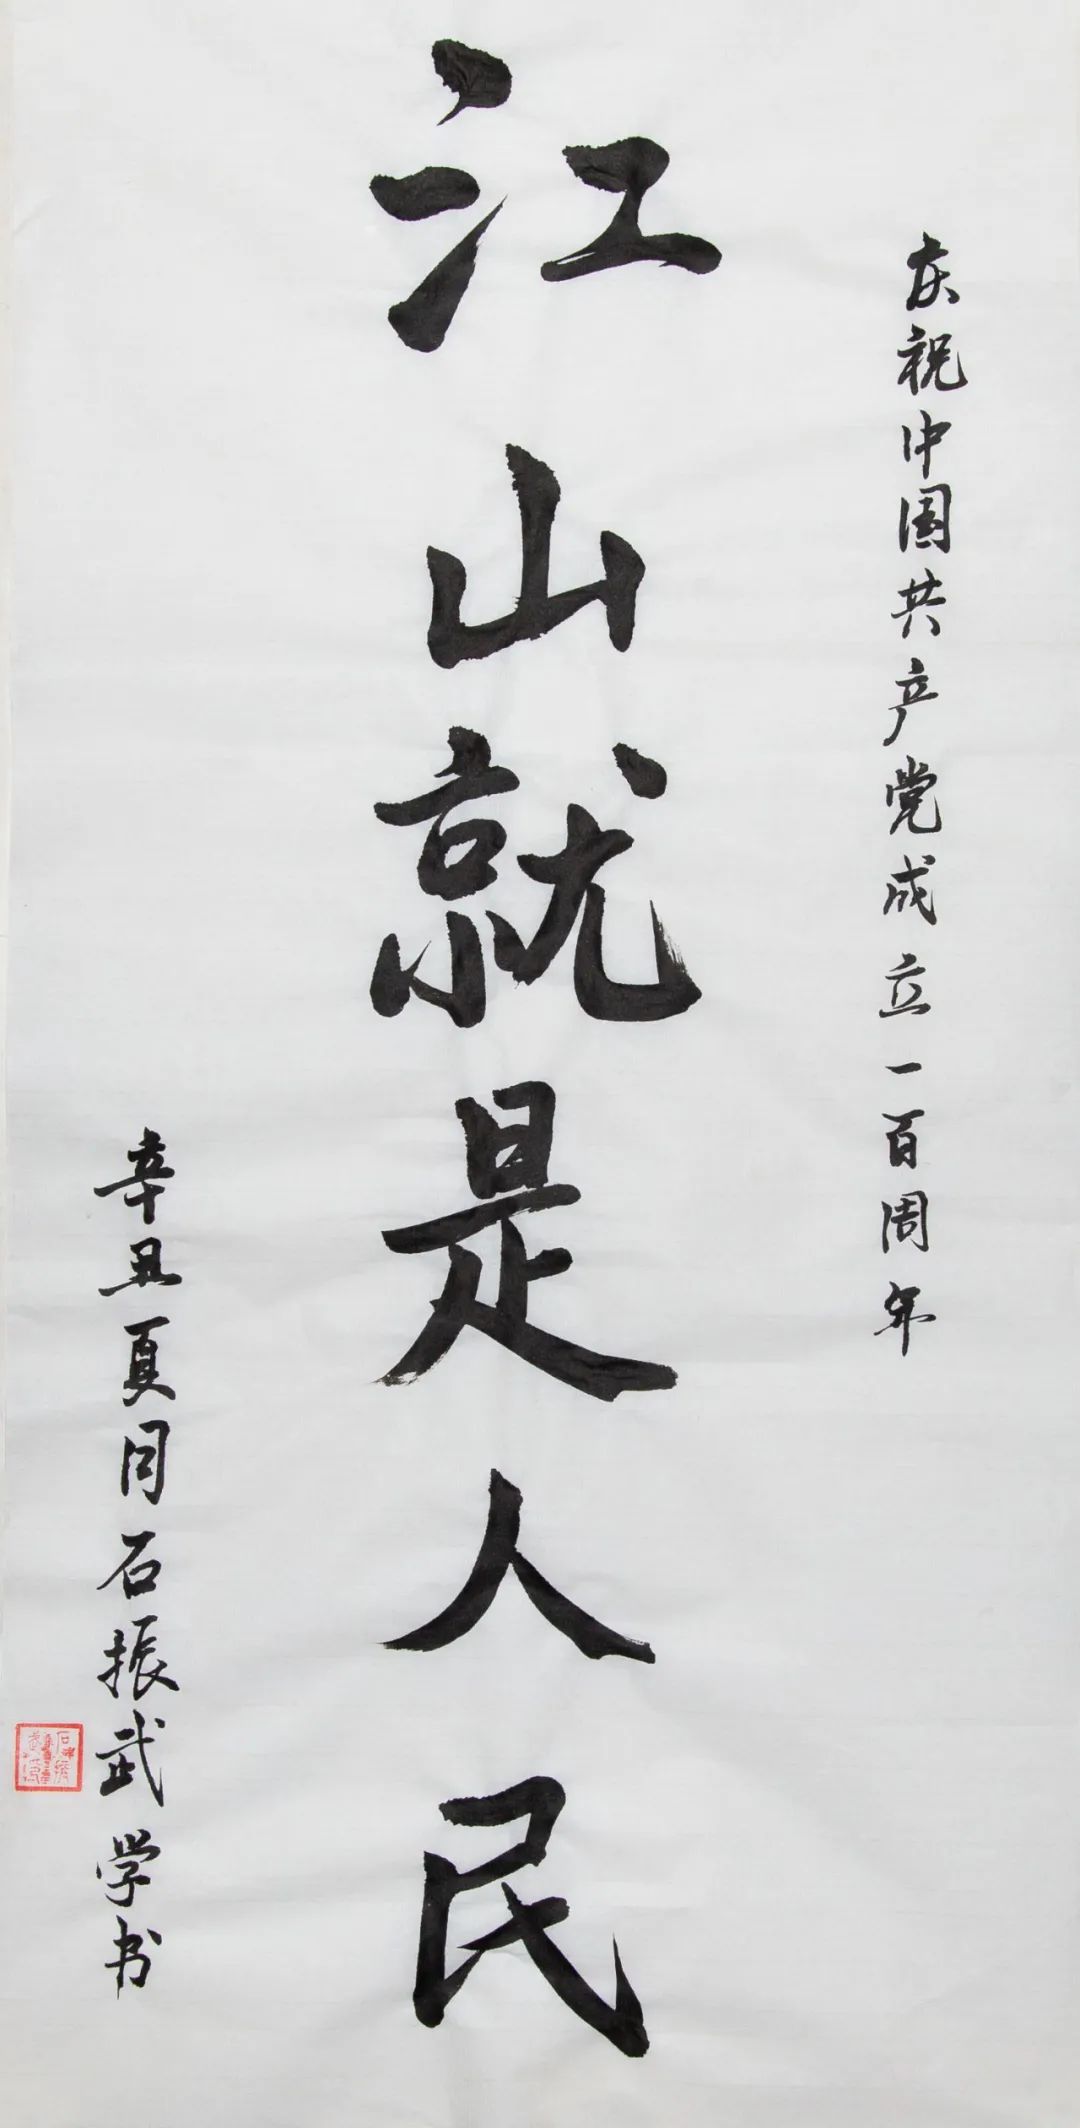 庆祝中国共产党成立一百周年
江山就是人民
辛丑夏月石振武学书